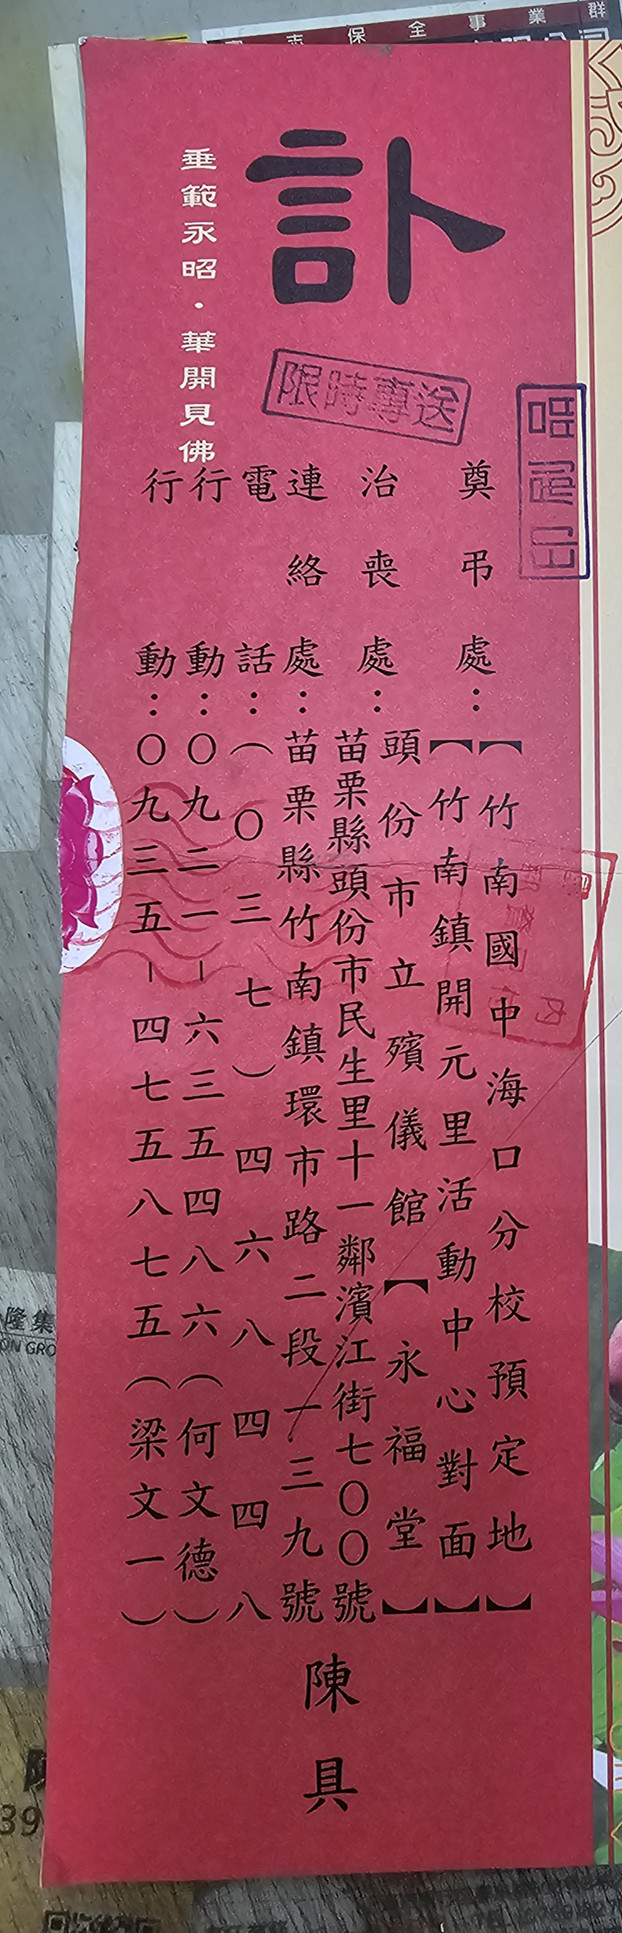 訃
垂範永昭・華開見佛
限時專送
奠弔處：【竹南國中海口分校預定地】
【竹南鎮開元里活動中心對面】
治喪處：頭份市立殯儀館【永福堂】
苗栗縣頭份市民生里十一鄰濱江街七〇〇號
連絡處：苗栗縣竹南鎮環市路二段一三九號
電話：（〇三七）四六八四四八
行動：〇九二一－六三五四八六（何文德）
行動：〇九三五－四七五八七五（梁文一）
陳具
保全事業群
隆集
39